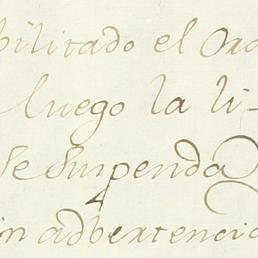 bilitado el Ord
luego la li-
se suspenda
in adbertencia